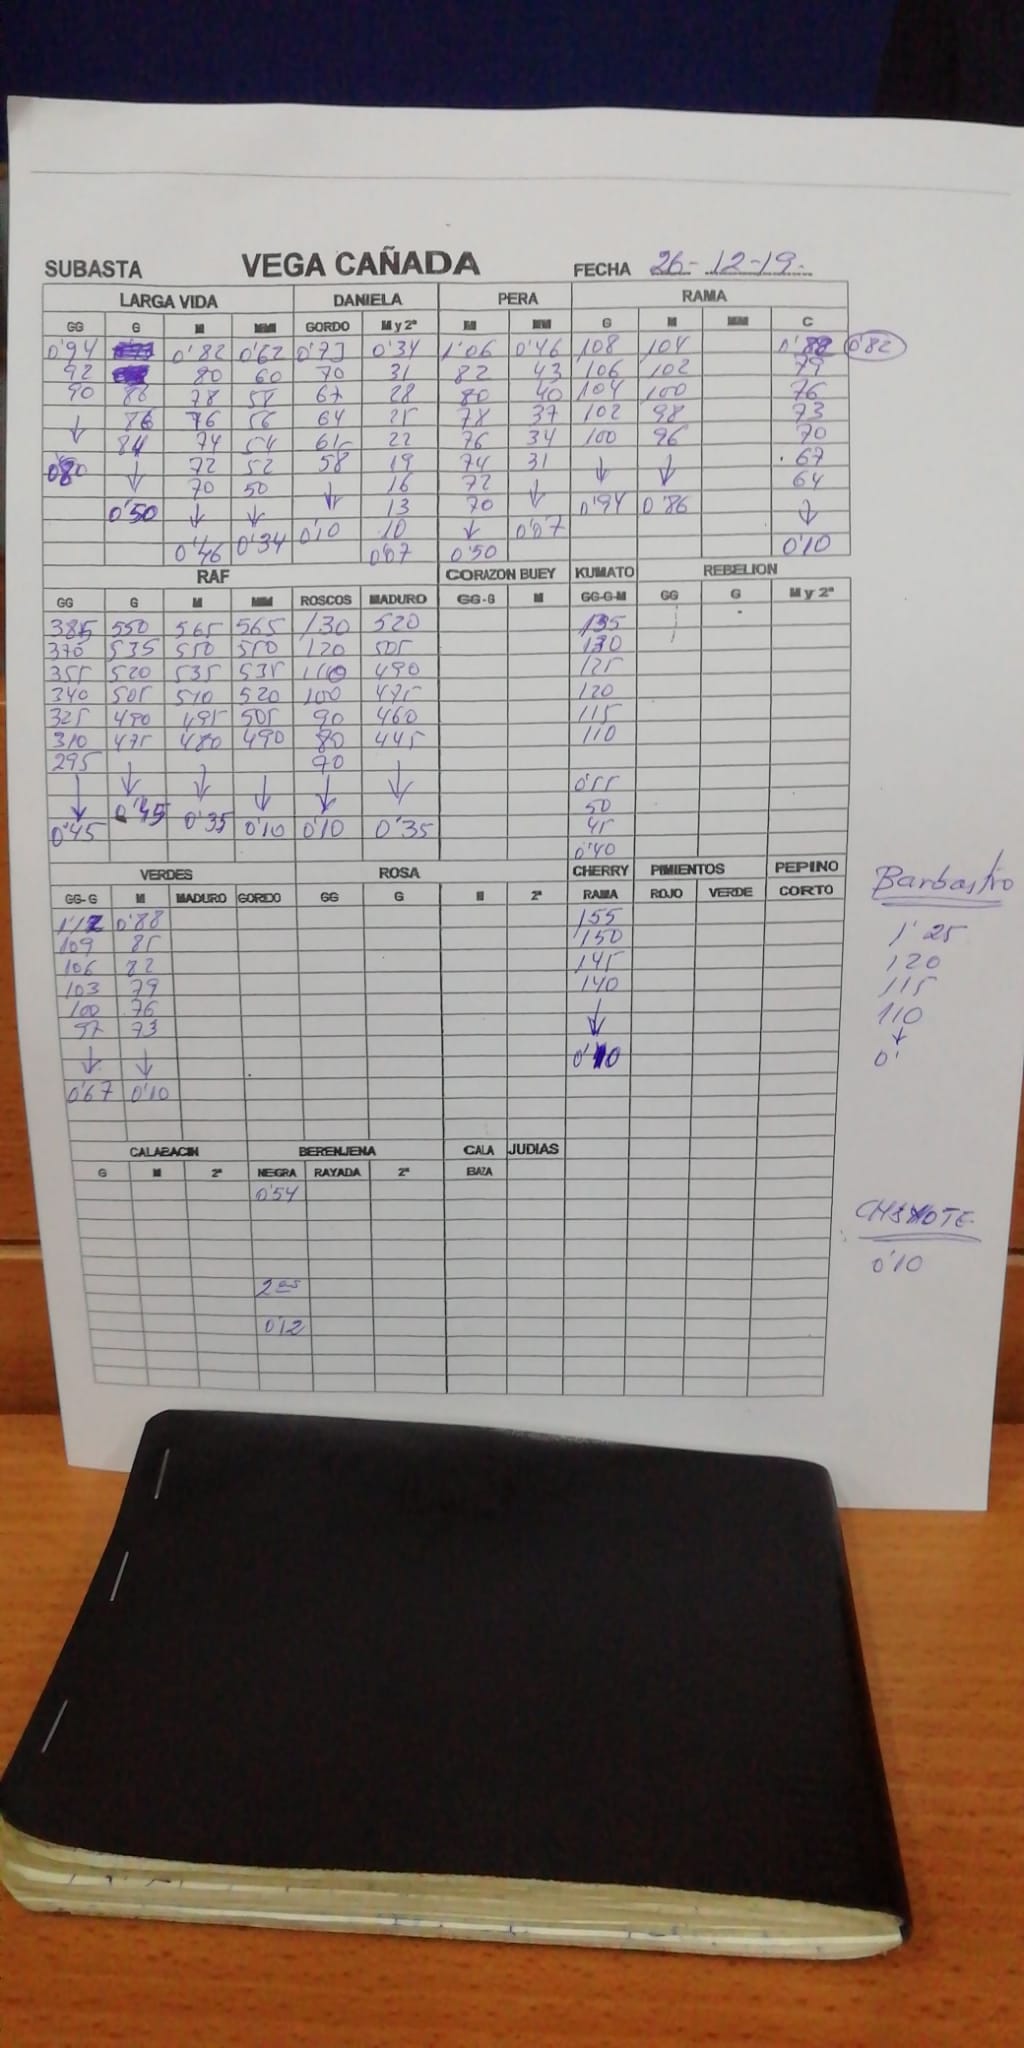 SUBASTA VEGA CAÑADA FECHA 26-12-19.
LARGA VIDA DANIELA PERA RAMA
GG G M MM GORDO M y 2ª M MM G M MM C
0'94 0'82 0'62 0'73 0'34 1'06 0'46 108 104 0'88 0'82
92 80 60 70 31 82 43 106 102 79
90 88 78 58 67 28 80 40 104 100 76
↓ 86 76 56 64 25 78 37 102 98 73
84 74 54 61 22 76 34 100 96 70
0'80 ↓ 72 52 58 19 74 31 ↓ ↓ 67
70 50 ↓ 16 72 ↓ 64
0'50 ↓ ↓ 13 70 0'94 0'86 ↓
0'46 0'34 0'10 10 ↓ 0'07 0'10
0'07 0'50
RAF CORAZON BUEY KUMATO REBELION
GG G M MM ROSCOS MADURO GG-G M GG-G-M GG G M y 2ª
385 550 565 565 130 520 135
370 535 550 550 120 505 130
355 520 535 535 110 490 125
340 505 510 520 100 475 120
325 490 495 505 90 460 115
310 475 480 490 80 445 110
295 ↓ ↓ 70
↓ ↓ ↓ ↓ 0'55
0'45 0'35 50
0'45 0'10 0'10 0'35 45
0'40
VERDES ROSA CHERRY PIMIENTOS PEPINO
GG-G M MADURO GORDO GG G M 2ª RAMA ROJO VERDE CORTO
Barbastro
1'12 0'88 155
109 85 150 1'25
106 82 145 120
103 79 140 115
100 76 ↓ 110
97 73 ↓
↓ ↓ 0'10 0'
0'67 0'10
CALABACIN BERENJENA CALA JUDIAS
G M 2ª NEGRA RAYADA 2ª BAZA
0'54
CHAYOTE
0'10
2as
0'12